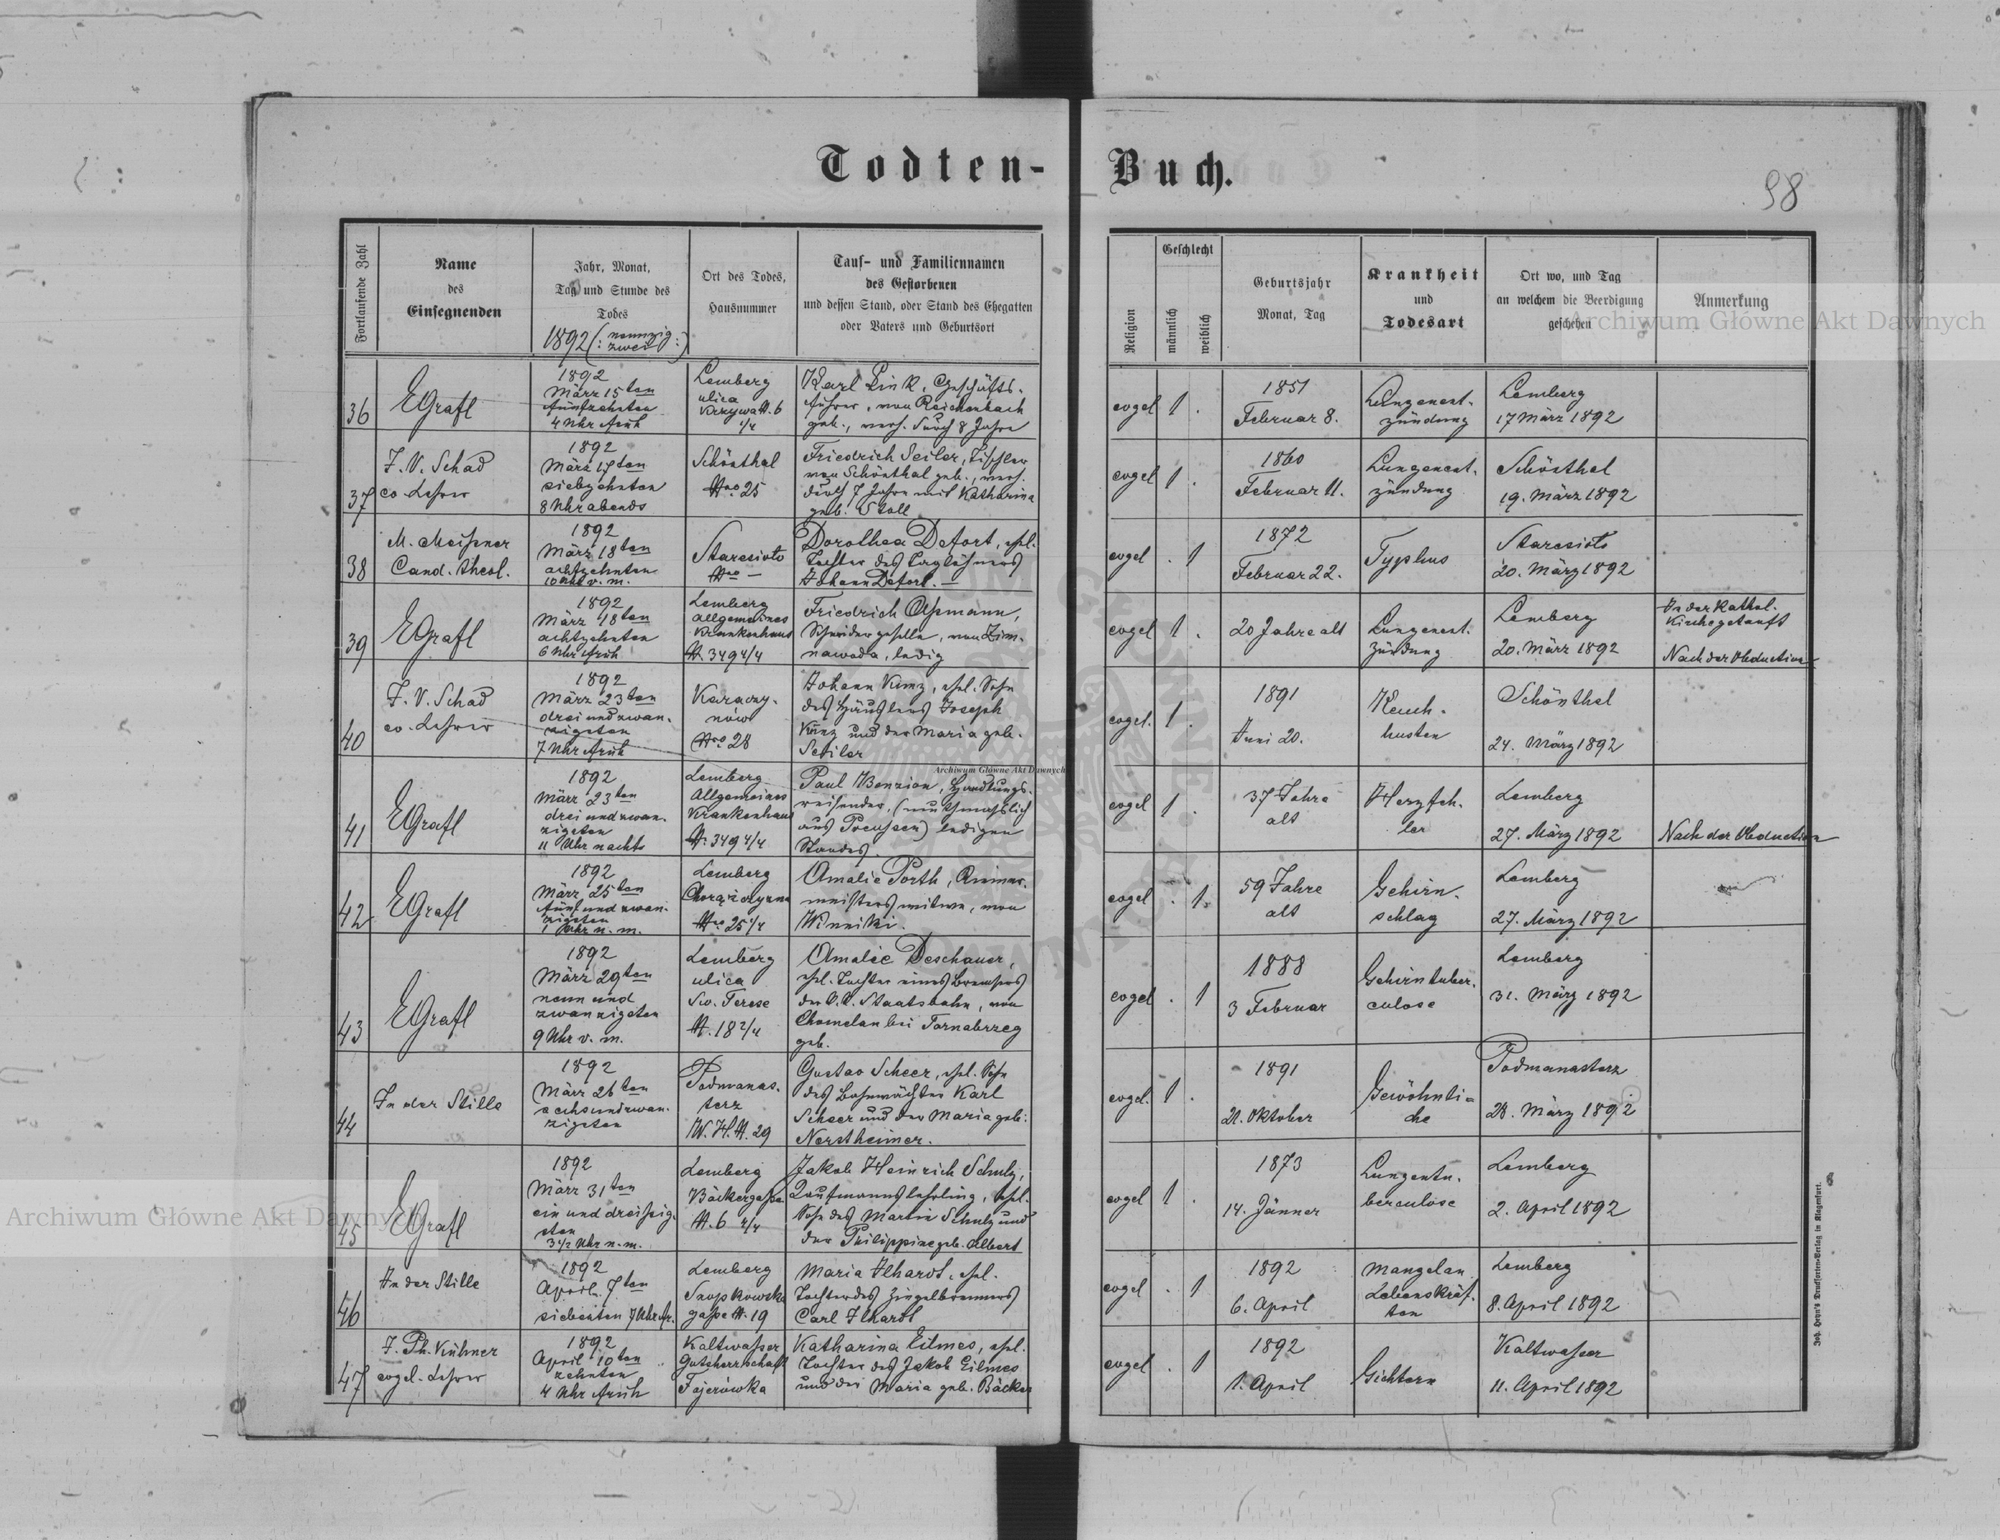 Todten-
Buch.
98
Fortlaufende Zahl
Name
des
Einsegnenden
Jahr, Monat,
Tag und Stunde des
Todes
1892 (: neunzig
zwei :)
Ort des Todes,
Hausnummer
Tauf- und Familiennamen
des Gestorbenen
und dessen Stand, oder Stand des Ehegatten
oder Vaters und Geburtsort
Religion
Geschlecht
männlich
weiblich
Geburtsjahr
Monat, Tag
Krankheit
und
Todesart
Ort wo, und Tag
an welchem die Beerdigung
geschehen
Anmerkung
36
EGrafl
1892
März 15ten
fünfzehnten
4 Uhr früh
Lemberg
ulica
Krzywa N. 6
1/4
Karl Link, Geschäfts-
führer, von Reichenbach
geb., verh. durch 8 Jahre
evgel
1 .
1851
Februar 8.
Lungenent-
zündung
Lemberg
17 März 1892
37
J. V. Schad
ev. Lehrer
1892
März 17ten
siebzehnten
8 Uhr abends
Schönthal
Nro 25
Friedrich Seiler, Tischler
von Schönthal geb., verh.
durch 7 Jahre mit Katharina
geb. Stoll
evgel
1 .
1860
Februar 11.
Lungenent-
zündung
Schönthal
19. März 1892
38
M. Meißner
Cand. theol.
1892
März 18ten
achtzehnten
10 Uhr v. m.
Staresioło
Nro —
Dorothea Defort, ehl.
Tochter des Taglöhners
Johann Defort. —
evgel
. 1
1872
Februar 22.
Typhus
Staresioło
20. März 1892
39
EGrafl
1892
März 18ten
achtzehnten
6 Uhr früh
Lemberg
allgemeines
Krankenhaus
N. 349 4/4
Friedrich Aßmann,
Schneidergeselle, von Zim-
nawoda, ledig
evgel
1 .
20 Jahre alt
Lungenent-
zündung
Lemberg
20. März 1892
In der Kathol.
Kirche getauft
Nach der Obduction
40
J. V. Schad
ev. Lehrer
1892
März 23ten
drei und zwan-
zigsten
7 Uhr früh
Karaczy-
nów
Nro 28
Johann Kunz, ehl. Sohn
des Häuslers Joseph
Kunz und der Maria geb.
Seiler
evgel.
1 .
1891
Juni 20.
Keuch-
husten
Schönthal
24. März 1892
41
EGrafl
1892
März 23ten
drei und zwan-
zigsten
11 Uhr nachts
Lemberg
Allgemeines
Krankenhaus
N. 349 4/4
Paul Benzion, Handlungs-
reisender, (muthmaßlich
aus Preußen) ledigen
Standes.
evgel
1 .
37 Jahre
alt
Herzfeh-
ler
Lemberg
27. März 1892
Nach der Obduction
42.
EGrafl
1892
März 25ten
fünf und zwan-
zigsten
1 Uhr n. m.
Lemberg
Chorążczyzna
Nro 25 1/4
Amalie Porth, Riemer-
meisters witwe, von
Winniki.
evgel
. 1.
59 Jahre
alt
Gehirn-
schlag
Lemberg
27. März 1892
43
EGrafl
1892
März 29ten
neun und
zwanzigsten
9 Uhr v. m.
Lemberg
ulica
Sw. Terese
N. 18 2/4
Amalie Deschauer,
ehl. Tochter eines Bremsers
der k. k. Staatsbahn, von
Chmelau bei Tarnobrzeg
geb.
evgel
. 1
1888
3 Februar
Gehirntuber-
culose
Lemberg
31. März 1892
44
In der Stille
1892
März 26ten
sechsundzwan-
zigsten
Podmanas-
terz
W. H. N. 29
Gustav Scheer, ehl. Sohn
des Bahnwächter Karl
Scheer und der Maria geb:
Nerstheimer.
evgel.
1 .
1891
21. Oktober
Gewöhnli-
che
Podmanasterz
28. März 1892
45
EGrafl
1892
März 31ten
ein und dreißig-
sten
3 1/2 Uhr n. m.
Lemberg
Bäckergaße
N. 6 4/4
Jakob Heinrich Schulz,
Kaufmannslehrling, ehl.
Sohn des Martin Schulz und
der Philippine geb. Albert
evgel
1 .
1873
14. Jänner
Lungentu-
berculose
Lemberg
2. April 1892
46
In der Stille
1892
April 7ten
siebenten 7 Uhr fr.
Lemberg
Snopkowska
gaße N. 19
Maria Ilhardt, ehl.
Tochter des Ziegelbrenners
Carl Ilhardt
evgel
. 1
1892
6. April
Mangel an
Lebenskräf-
ten
Lemberg
8. April 1892
47
J. Ph. Kühner
evgel. Lehrer
1892
April 10ten
zehnten
4 Uhr früh
Kaltwaßer
Gutsherrschaft
Fajerówka
Katharina Eilmes, ehl.
Tochter des Jakob Eilmes
und der Maria geb. Bäcker
evgel
. 1
1892
1. April
Gichtern
Kaltwaßer
11. April 1892
Joh. Heyn's Drucksorten-Verlag in Klagenfurt.
Archiwum Główne Akt Dawnych
Archiwum Główne Akt Dawnych
Archiwum Główne Akt Dawnych